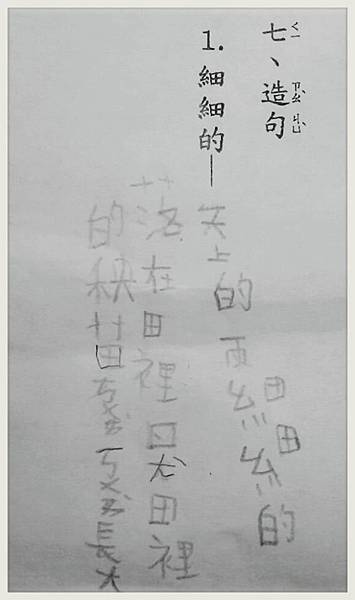 七、造句
ㄑㄧ ㄗㄠˋ ㄐㄩˋ
1.細細的—天上的雨細細的
落在田裡ㄖㄤˋ田裡
的秧苗ㄎㄨㄞˋㄎㄨㄞˋ長大